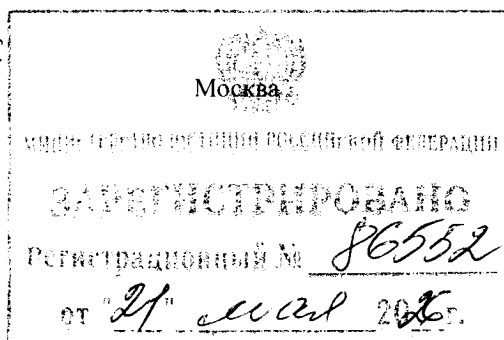 Москва
МИНИСТЕРСТВО ЮСТИЦИИ РОССИЙСКОЙ ФЕДЕРАЦИИ
ЗАРЕГИСТРИРОВАНО
Регистрационный № 86552
от "21" мая 2026 г.